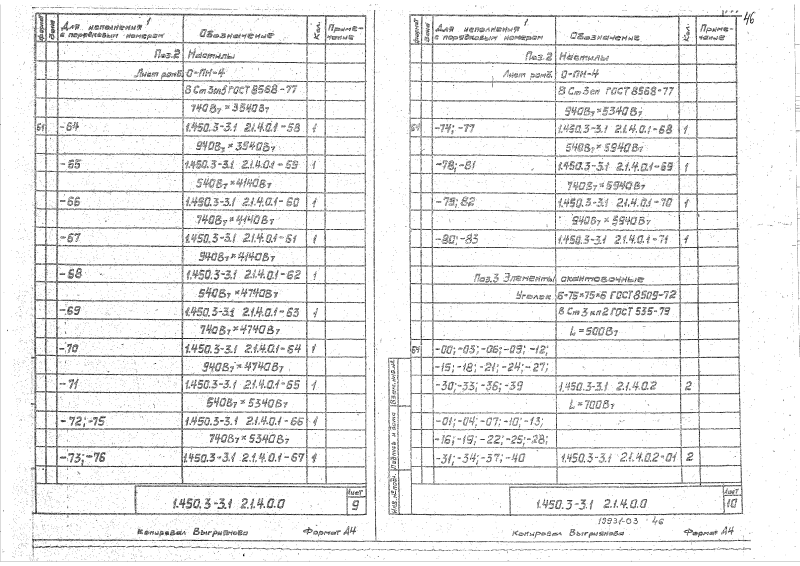 46
Формат Зона Для исполнения с порядковым номером Обозначение Кол. Приме-чание
Поз.2 Настилы
Лист ромб. О-ПН-4
В Ст3сп5 ГОСТ 8568-77
740В7×3540В7
-64 1.450.3-3.1 2.1.4.0.1-58 1
940В7×3540В7
-65 1.450.3-3.1 2.1.4.0.1-59 1
540В7×4140В7
-66 1.450.3-3.1 2.1.4.0.1-60 1
740В7×4140В7
-67 1.450.3-3.1 2.1.4.0.1-61 1
940В7×4140В7
-68 1.450.3-3.1 2.1.4.0.1-62 1
540В7×4740В7
-69 1.450.3-3.1 2.1.4.0.1-63 1
740В7×4740В7
-70 1.450.3-3.1 2.1.4.0.1-64 1
940В7×4740В7
-71 1.450.3-3.1 2.1.4.0.1-65 1
540В7×5340В7
-72;-75 1.450.3-3.1 2.1.4.0.1-66 1
740В7×5340В7
-73;-76 1.450.3-3.1 2.1.4.0.1-67 1
1.450.3-3.1 2.1.4.0.0 Лист 9
Копировал Формат А4
Формат Зона Для исполнения с порядковым номером Обозначение Кол. Приме-чание
Поз.2 Настилы
Лист ромб О-ПН-4
В Ст3сп ГОСТ 8568-77
940В7×5340В7
-74;-77 1.450.3-3.1 2.1.4.0.1-68 1
540В7×5940В7
-78;-81 1.450.3-3.1 2.1.4.0.1-69 1
740В7×5940В7
-79;82 1.450.3-3.1 2.1.4.0.1-70 1
940В7×5940В7
-80;-83 1.450.3-3.1 2.1.4.0.1-71 1
Поз.3 Элементы окантовочные
Уголок Б-75×75×6 ГОСТ 8509-72
В Ст3кп2 ГОСТ 535-79
L=500В7
-00;-03;-06;-09;-12;
-15;-18;-21;-24;-27;
-30;-33;-36;-39 1.450.3-3.1 2.1.4.0.2 2
L=700В7
-01;-04;-07;-10;-13;
-16;-19;-22;-25;-28;
-31;-34;-37;-40 1.450.3-3.1 2.1.4.0.2-01 2
Инв.№подл. Подпись и дата Взам.инв.№
1.450.3-3.1 2.1.4.0.0 Лист 10
19931-03 46
Копировал Формат А4